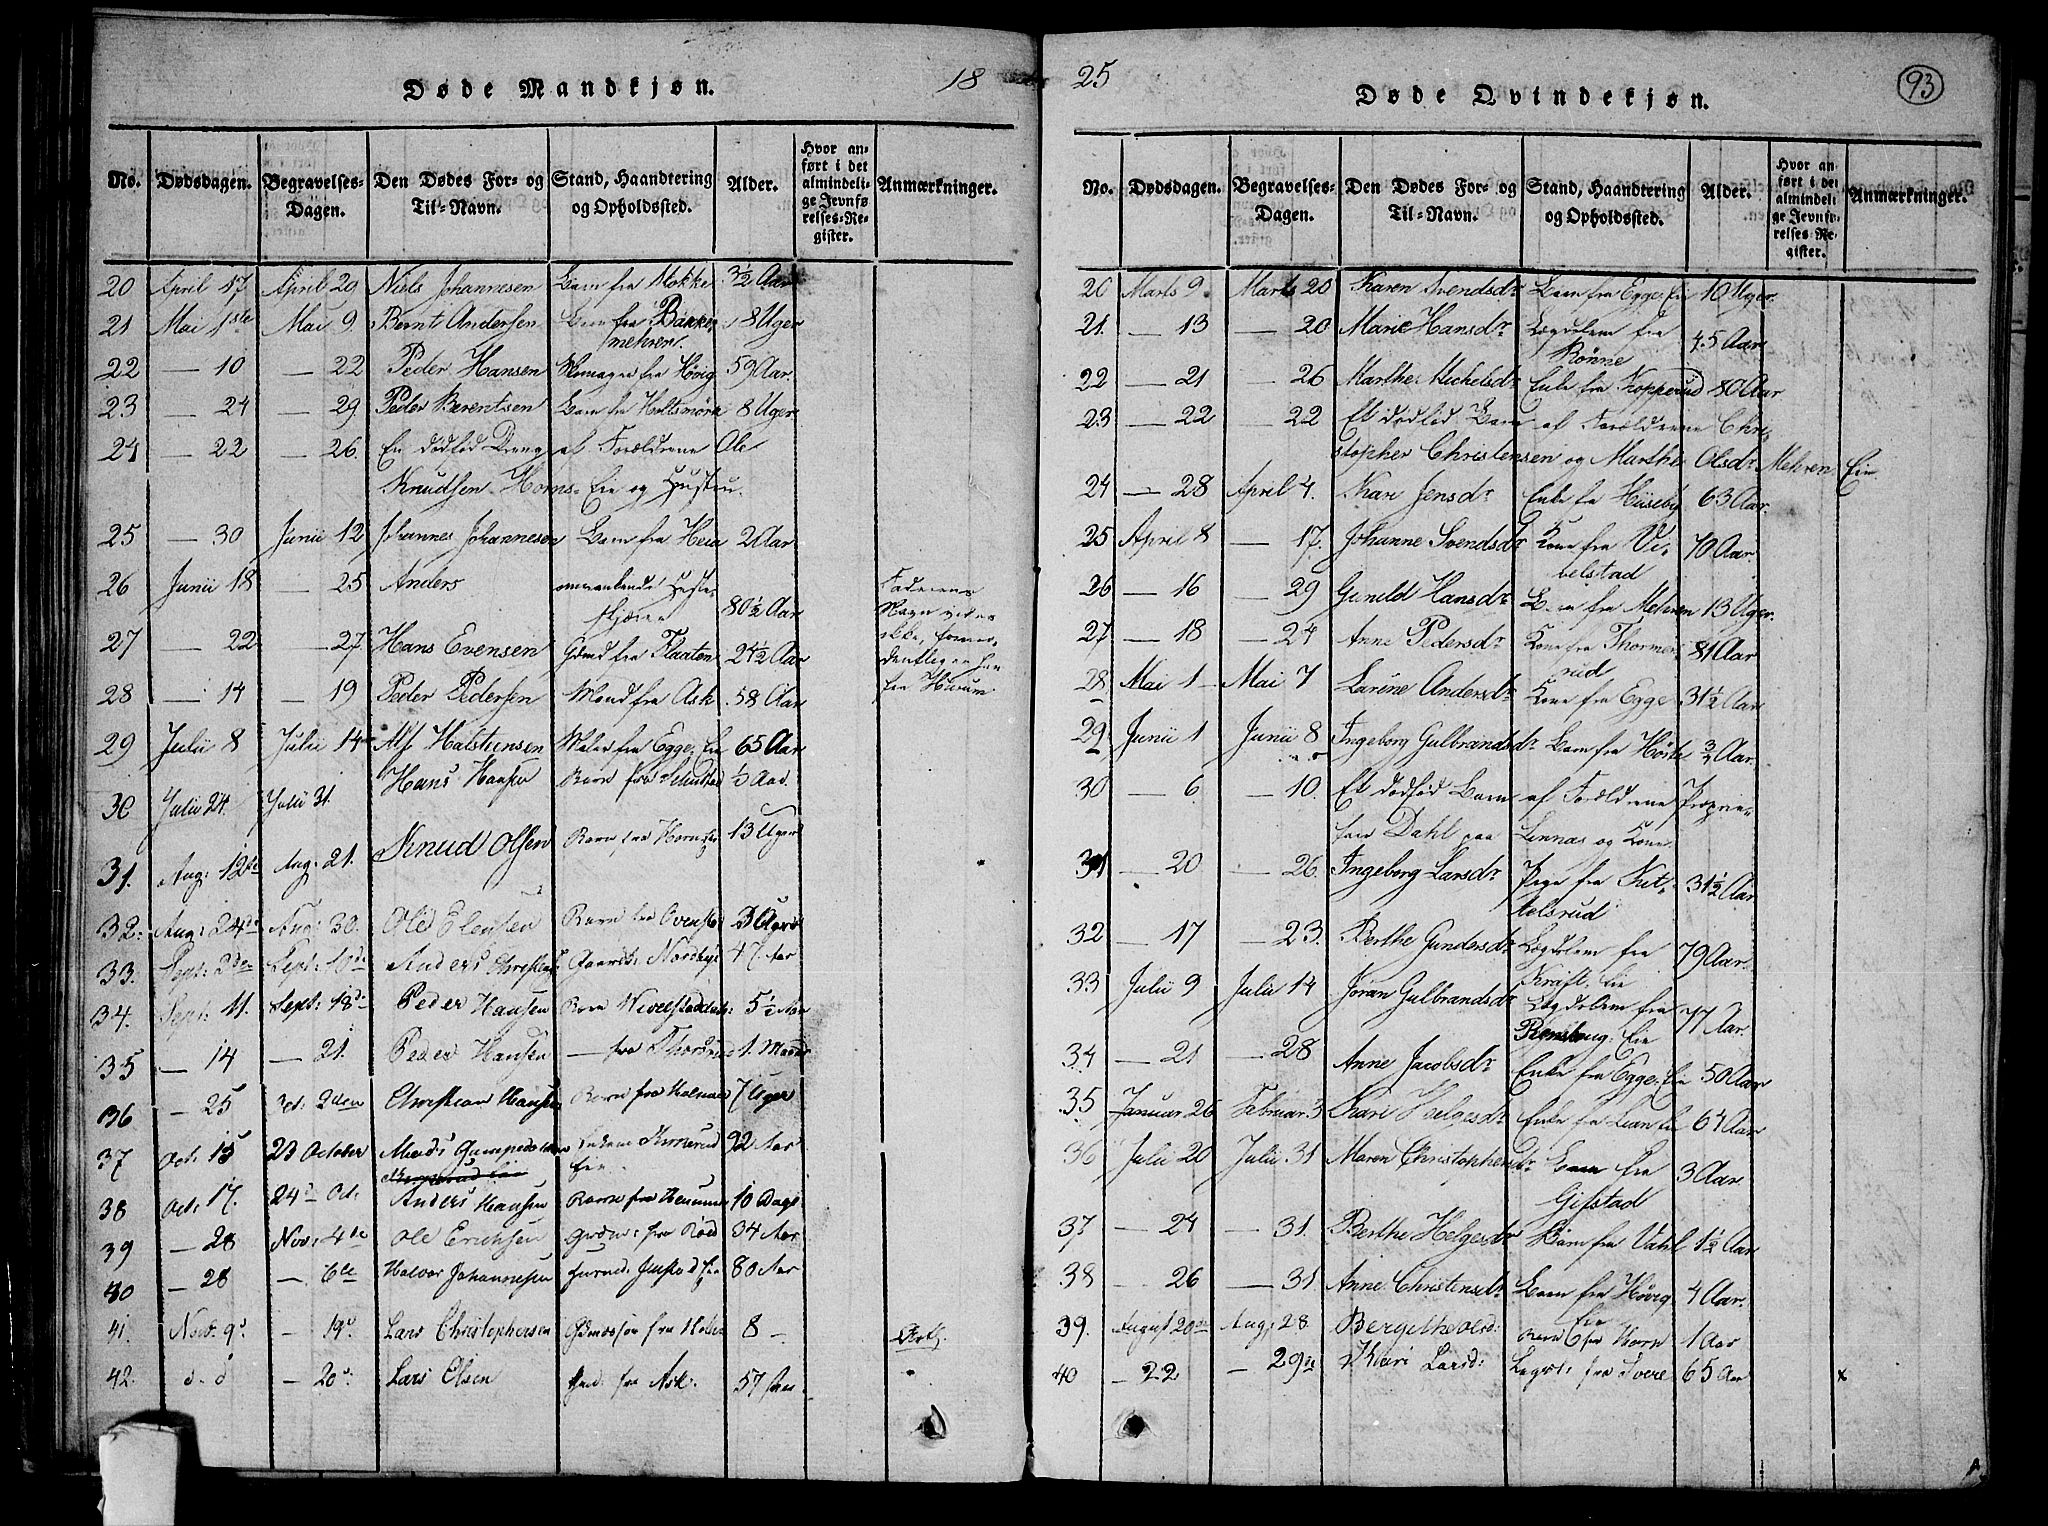 Døde Mandkjøn.
18
No. Dødsdagen. Begravelses-Dagen. Den Dødes For- og Til-Navn. Stand, Haandtering og Opholdssted. Alder. Hvor anført i det almindelige Jevnførelses-Register. Anmærkninger.
20 April 17 April 20 Niels Johannesen Barn fra Mokke 3½ Aar
21 Mai 1ste Mai 9. Bernt Andersen Barn fra Bakke, 8 Uger
mehren.
22 — 10 — 22 Peder Hansen fra Høvig 59 Aar.
23 — 24 — 29 Peder Berentsen Barn fra Holtsmørk 8 Uger
24 — 22 — 26. En dødfød Dreng af Forældrene Ole
Knudsen Horns-Eie og Hustru.
25 — 30 Junii 12 Johannes Johannesen Barn fra Heia 2 Aar
26 Junii 18 — 25 Anders omvankende Heste- Faderens
skjærer 80½ Aar Navn vides
27 — 22 — 27 Hans Evensen Gdmd fra Flaaten 24½ Aar ikke, formo-
dentlig er han
28 — 14 — 19 Peder Pedersen Mand fra Ask 58 Aar fra Hurum
29 Julii 8 Julii 14 Alf Halsteensen Maler fra Egge-Eie 65 Aar
30 Julii 24. Julii 31. Hans Hansen Barn fra ½ Aar.
31. Aug: 12te Aug: 21. Knud Olsen Barn fra Horns 13 Uger
32. Aug: 24de Aug: 30. Ole Barn fra 3 Aar
33. Sept: 2den Sept: 10de Anders Christens: Gaardbr: Nordbye 47 Aar
34. Sept: 11. Sept: 18de Peder Hansen Barn 5½ Aar
35 — 14 — 21. Peder Hansen — fra 1. Maaned
36 — 25 Oct: 2den Christian Hansen Barn fra 7 Uger
37 Oct: 15 23 October 92 Aar
Eie.
38 Oct: 17. 24de Oct: Anders Hansen Barn fra 10 Dage
39 — 28 Nov: 4de Ole Erichsen fra Røed 34 Aar
40 — 28 — 6te Halvor Johannesen 80 Aar
41. Nov: 9de — 19de Lars Christophersen fra 8 —
42. d. d — 20de Lars Olsen fra Ask. 57 Aar
25
Døde Qvindekjøn.
93
No. Dødsdagen. Begravelses-Dagen. Den Dødes For- og Til-Navn. Stand, Haandtering og Opholdssted. Alder. Hvor anført i det almindelige Jevnførelses-Register. Anmærkninger.
20 Marts 9. Marts 20 Karen Svendsdr Barn fra Egge-Eie 10 Uger.
21. — 13 — 20 Marie Hansdr Lægdslem fra 45 Aar
Rønne
22 — 21 — 26 Marthe Michelsdr Enke fra Kopperud 80 Aar
23 — 22 — 22 Et dødfød Barn af Forældrene Chri-
stopher Christensen og Marthe Olsdr Mehren Eie
24 — 28 April 4. Kari Jensdr Enke fra Huseby 63 Aar.
25 April 8 — 17. Johanne Svendsdr Kone fra Vi- 70 Aar.
belstad
26 — 16 — 29 Gunild Hansdr Barn fra Mehren 13 Uger.
27 — 18 — 24 Anne Pedersdr Kone fra Thormo- 81 Aar
rud
28 Mai 1 Mai 7 Larene Andersdr Kone fra Egge 31½ Aar
29 Junii 1 Junii 8 Ingeborg Gulbrandsdr Barn fra Hørte 3/2 Aar.
30 — 6 — 10. Et dødfød Barn af Forældrene Proprie-
tair Dahl paa Linnæs og Kone.
31 — 20 — 26. Ingeborg Larsdr Pige fra Kit- 31½ Aar
telsrud
32 — 17 — 23. Berthe Gundersdr Lægdslem fra 79 Aar.
Kraft-Eie
33 Julii 9 Julii 14 Jøran Gulbrandsdr Lægdslem fra 77 Aar.
Eie
34 — 21 — 28 Anne Jacobsdr Enke fra Egge-Eie 50 Aar
35 Januar 26 Februar 3 Kari Helgesdr Enke fra Lian Eie 64 Aar
36 Julii 20 Julii 31 Maren Christophersdr Barn fra 3 Aar
Gifstad
37 — 24 — 31. Berthe Helgesdr Barn fra Vahl 1½ Aar
38 — 26 — 31 Anne Christensdr Barn fra Høvig 4 Aar.
Eie
39. August 20de Aug: 28 Bergethe Olsd: Barn fra Horn 1 Aar
40 — 22 — 29de Kari Larsd: Lægdsl: fra 65 Aar x